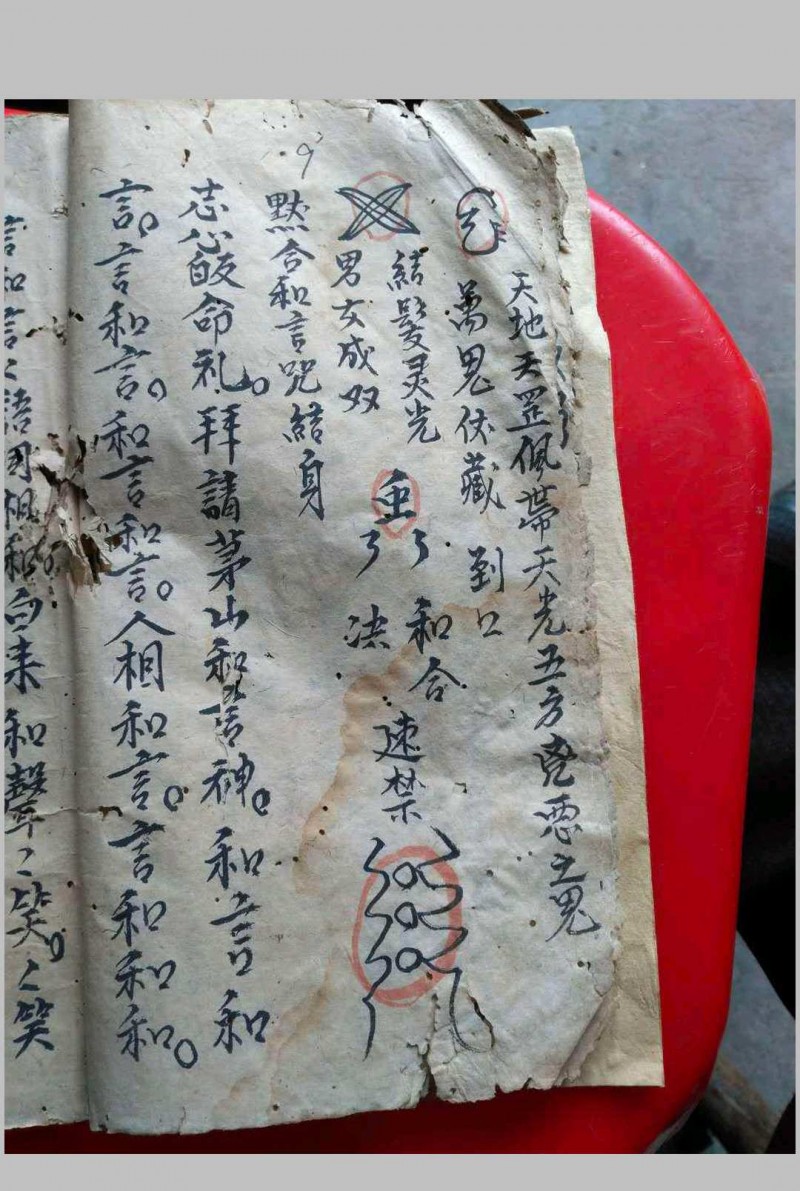 天地天罡佩带天光五方凶恶之鬼
萬鬼伏藏 到口
結髮灵光 和合
男女成双 决
速禁
默合和言咒結身
志心皈命礼。拜請茅山和言神。和言和
言。言和言。和言和言。人相和言。言和和和。
言和言〻語用相和自来和聲〻笑。〻笑